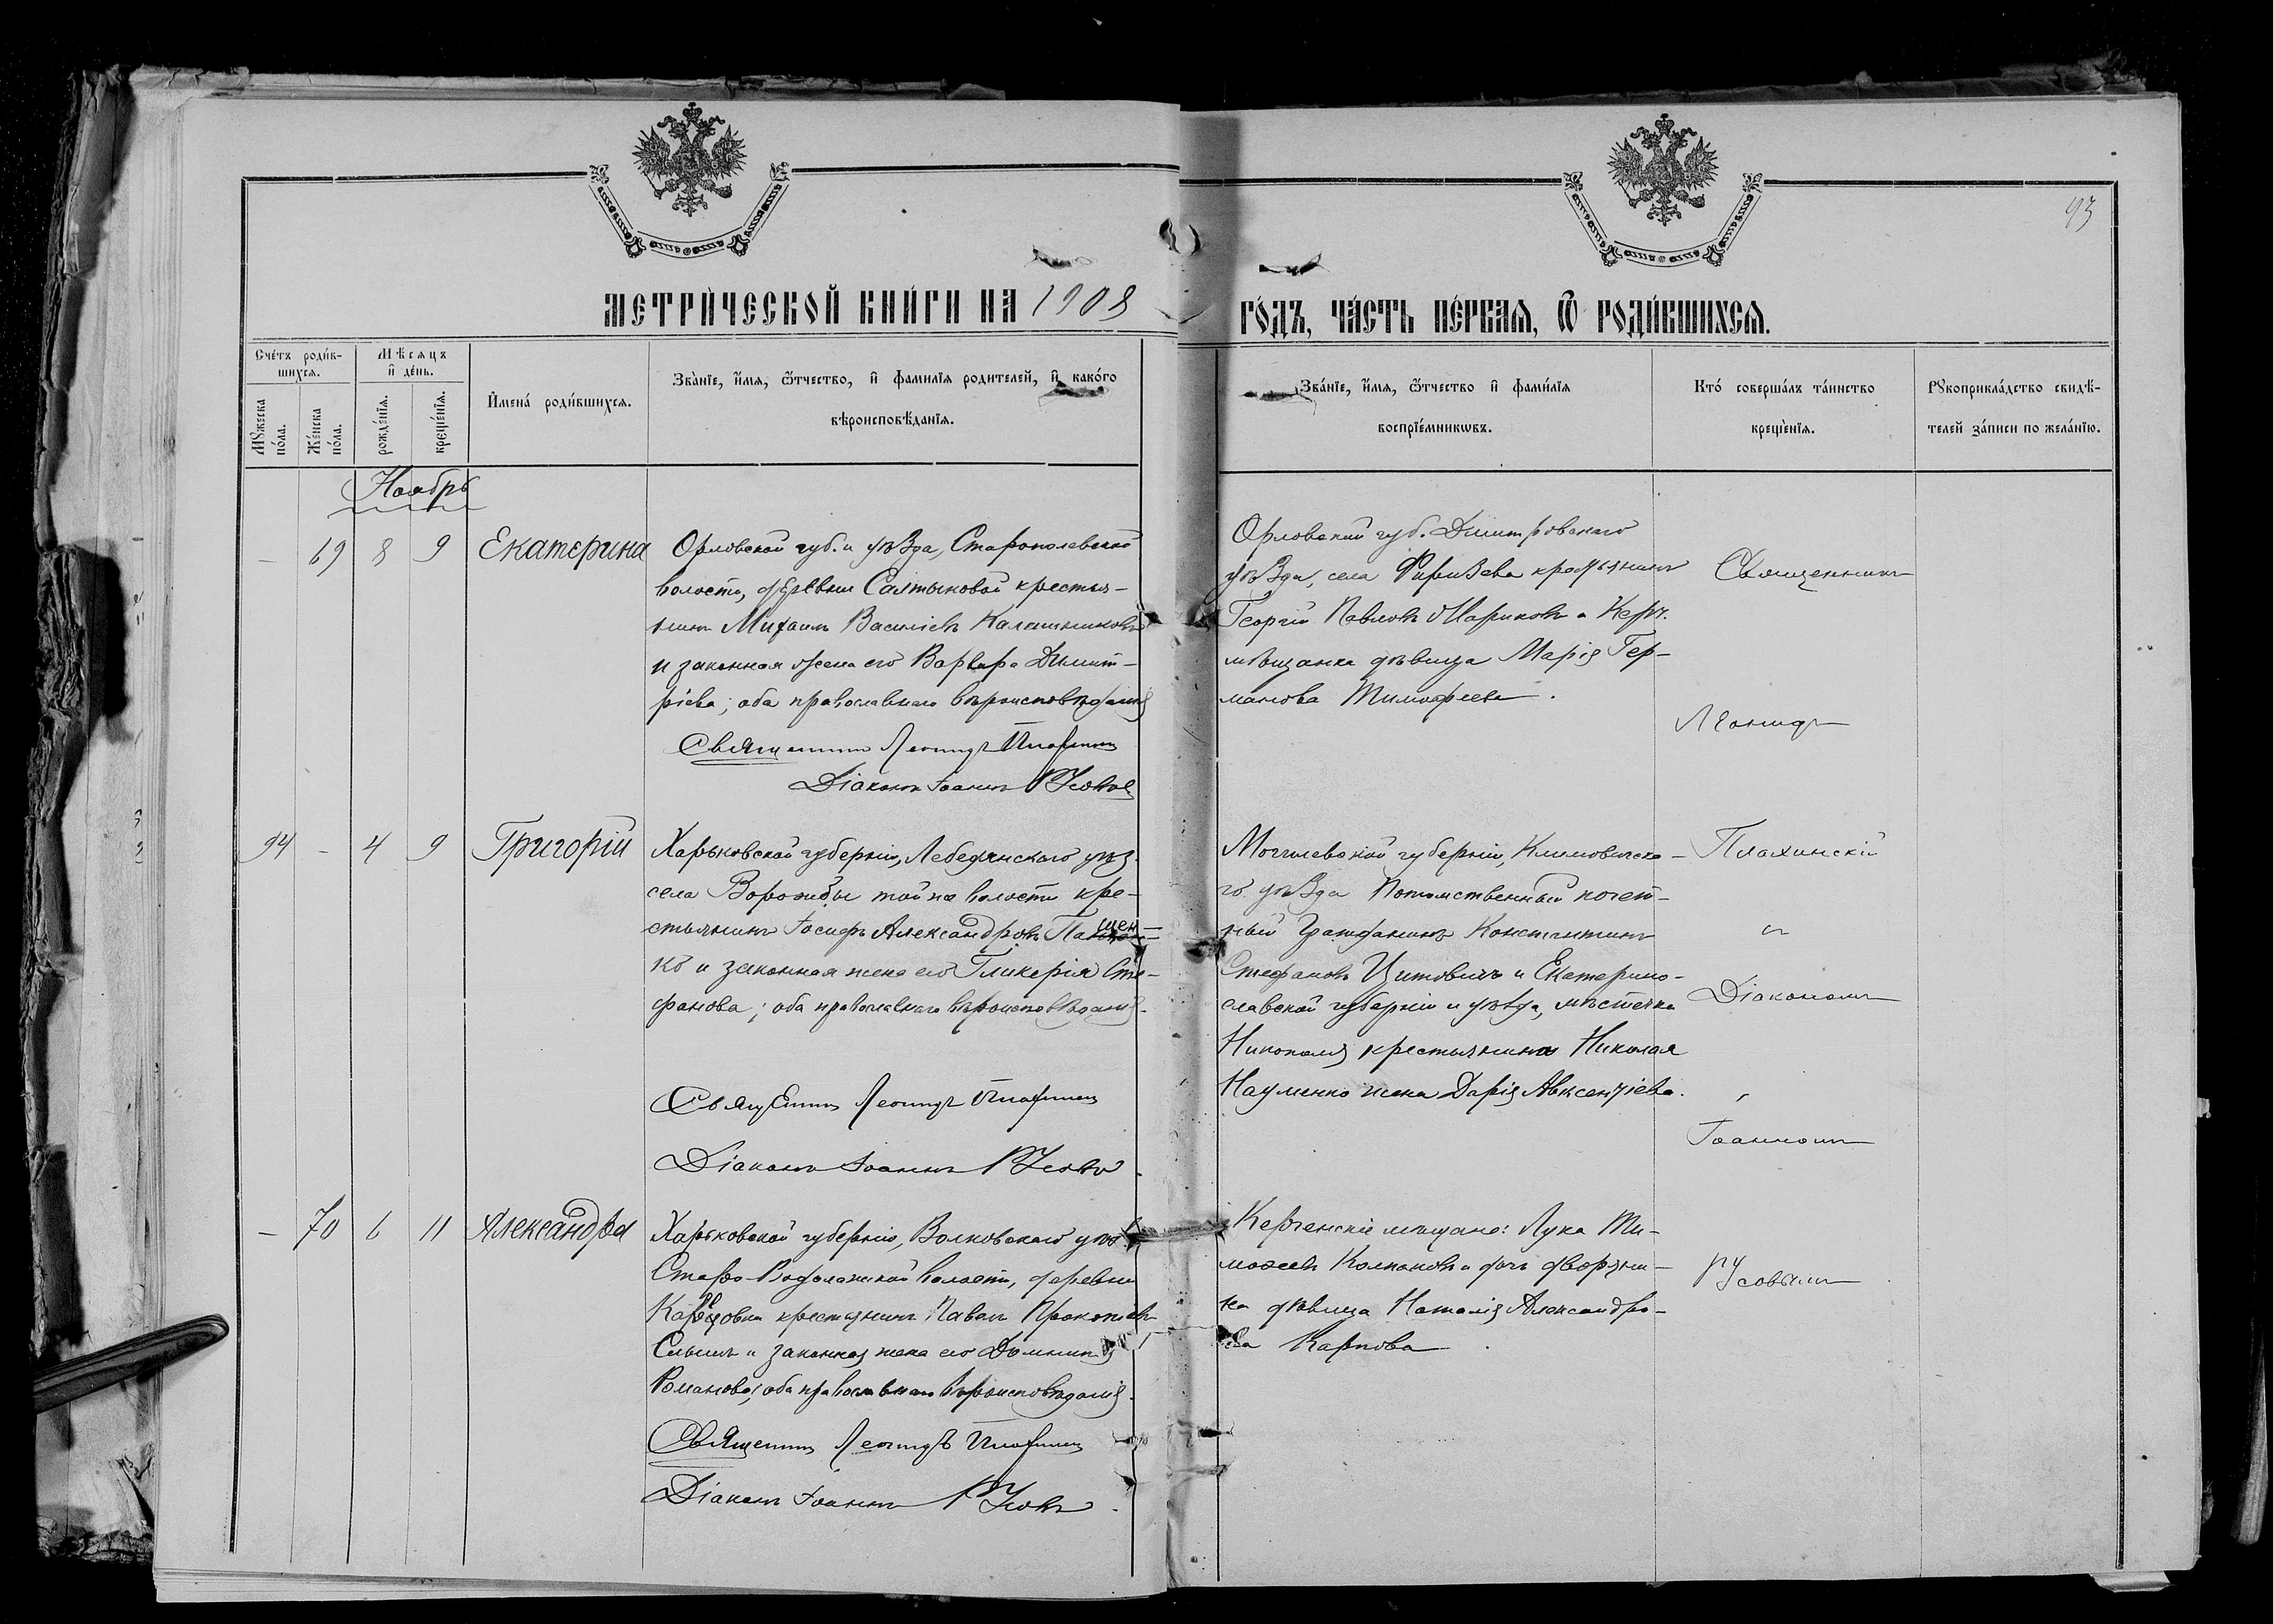 93
МЕТРИ́ЧЕСКОЙ КНИ́ГИ НА 1908 ГО́ДЪ, ЧА́СТЬ ПЕ́РВАѦ, Ѿ РОДИ́ВШИХСѦ.
Сче́тъ роди́в-
шихсѧ.
Мꙋ́жеска
по́ла.
Же́нска
по́ла.
Мѣ́сяцъ
и҆ де́нь.
рожде́нїѧ.
креще́нїѧ.
И҆мена́ роди́вшихсѧ.
Зва́нїе, и҆́мѧ, ѻ҆́тчество, и҆ фами́лїѧ родителей, и҆ како́го
вѣроисповѣ́данїѧ.
Зва́нїе, и҆́мѧ, ѻ҆́тчество и҆ фами́лїѧ
воспрїе́мникѡвъ.
Кто́ соверша́лъ та́инство
креще́нїѧ.
Рꙋкоприкла́дство свидѣ́-
телей за́писи по жела́нїю.
Ноябрь
— 69 8 9 Екатерина
Орловской губ. и уѣзда, Старополевской
волости, деревни Салтыковой крестья-
нинъ Михаилъ Василіевъ Калашниковъ
и законная жена его Варвара Димит-
ріева; оба православнаго вѣроисповѣданія
Священникъ Леонидъ Плахинскій
Діаконъ Іоаннъ Русовъ
Орловской губ. Димитровскаго
уѣзда, села крестьянинъ
Георгій Павловъ Мариковъ и Керч.
мѣщанка дѣвица Марія Гер-
манова Тимофеева.
Священникъ
Леонидъ
94 — 4 9 Григорій
Харьковской губерніи, Лебедянскаго уѣз.
села Ворожбы той же волости кре-
стьянинъ Іосифъ Александровъ Пащен-
ко и законная жена его Гликерія Сте-
фанова; оба православнаго вѣроисповѣданія.
Священникъ Леонидъ Плахинскій
Діаконъ Іоаннъ Русовъ.
Могилевской губерніи, Климовичска-
го уѣзда Потомственный почет-
ный Гражданинъ Константинъ
Стефановъ Цитовичъ и Екатерино-
славской губерніи и уѣзда, мѣстечка
Никополя крестьянина Николая
Науменко жена Дарія Авксентіева.
Плахинскій
и
Діакономъ
Іоанномъ
— 70 6 11 Александра
Харьковской губерніи, Волковскаго уѣз.
Старо-Водолажской волости, деревни
крестьянинъ Павелъ Прокопіевъ
и законная жена его Домникія
Романова; оба православнаго вѣроисповѣданія.
Священникъ Леонидъ Плахинскій
Діаконъ Іоаннъ Русовъ.
Керченскіе мѣщане: Лука Ти-
мофеевъ Колпаковъ и дочь дворяни-
на дѣвица Наталія Александро-
ва Карпова.
Русовымъ